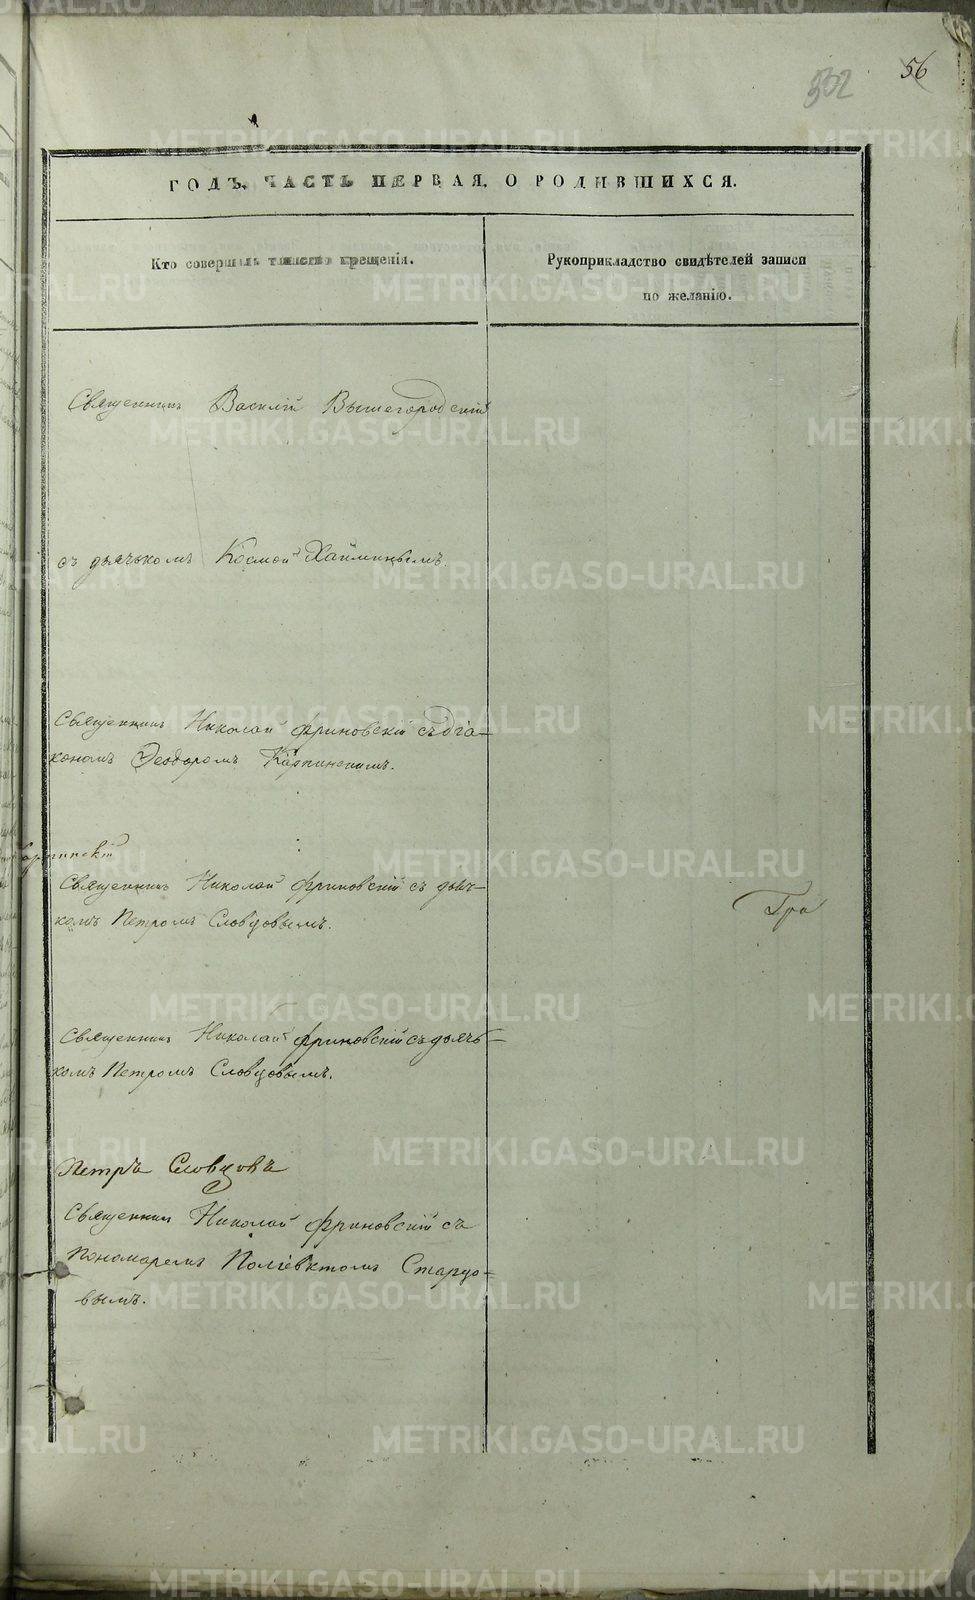 56
332
ГОДЪ. ЧАСТЬ ПЕРВАЯ. О РОДИВШИХСЯ.
Кто совершалъ таинство крещенія.
Рукоприкладство свидѣтелей записи
по желанію.
Священникъ Василій Вышегородскій
съ дьячькомъ Космой
Священникъ Николай Фриновскій съ діа-
кономъ Ѳеодоромъ Карпинскимъ.
Священникъ Николай Фриновскій съ дьяч-
комъ Петромъ Словцовымъ.
Гра
Священникъ Николай Фриновскій съ дьячь-
комъ Петромъ Словцовымъ.
Петръ Словцовъ
Священникъ Николай Фриновскій съ
Пономаремъ Поліевктомъ Старцо-
вымъ.
METRIKI.GASO-URAL.RU